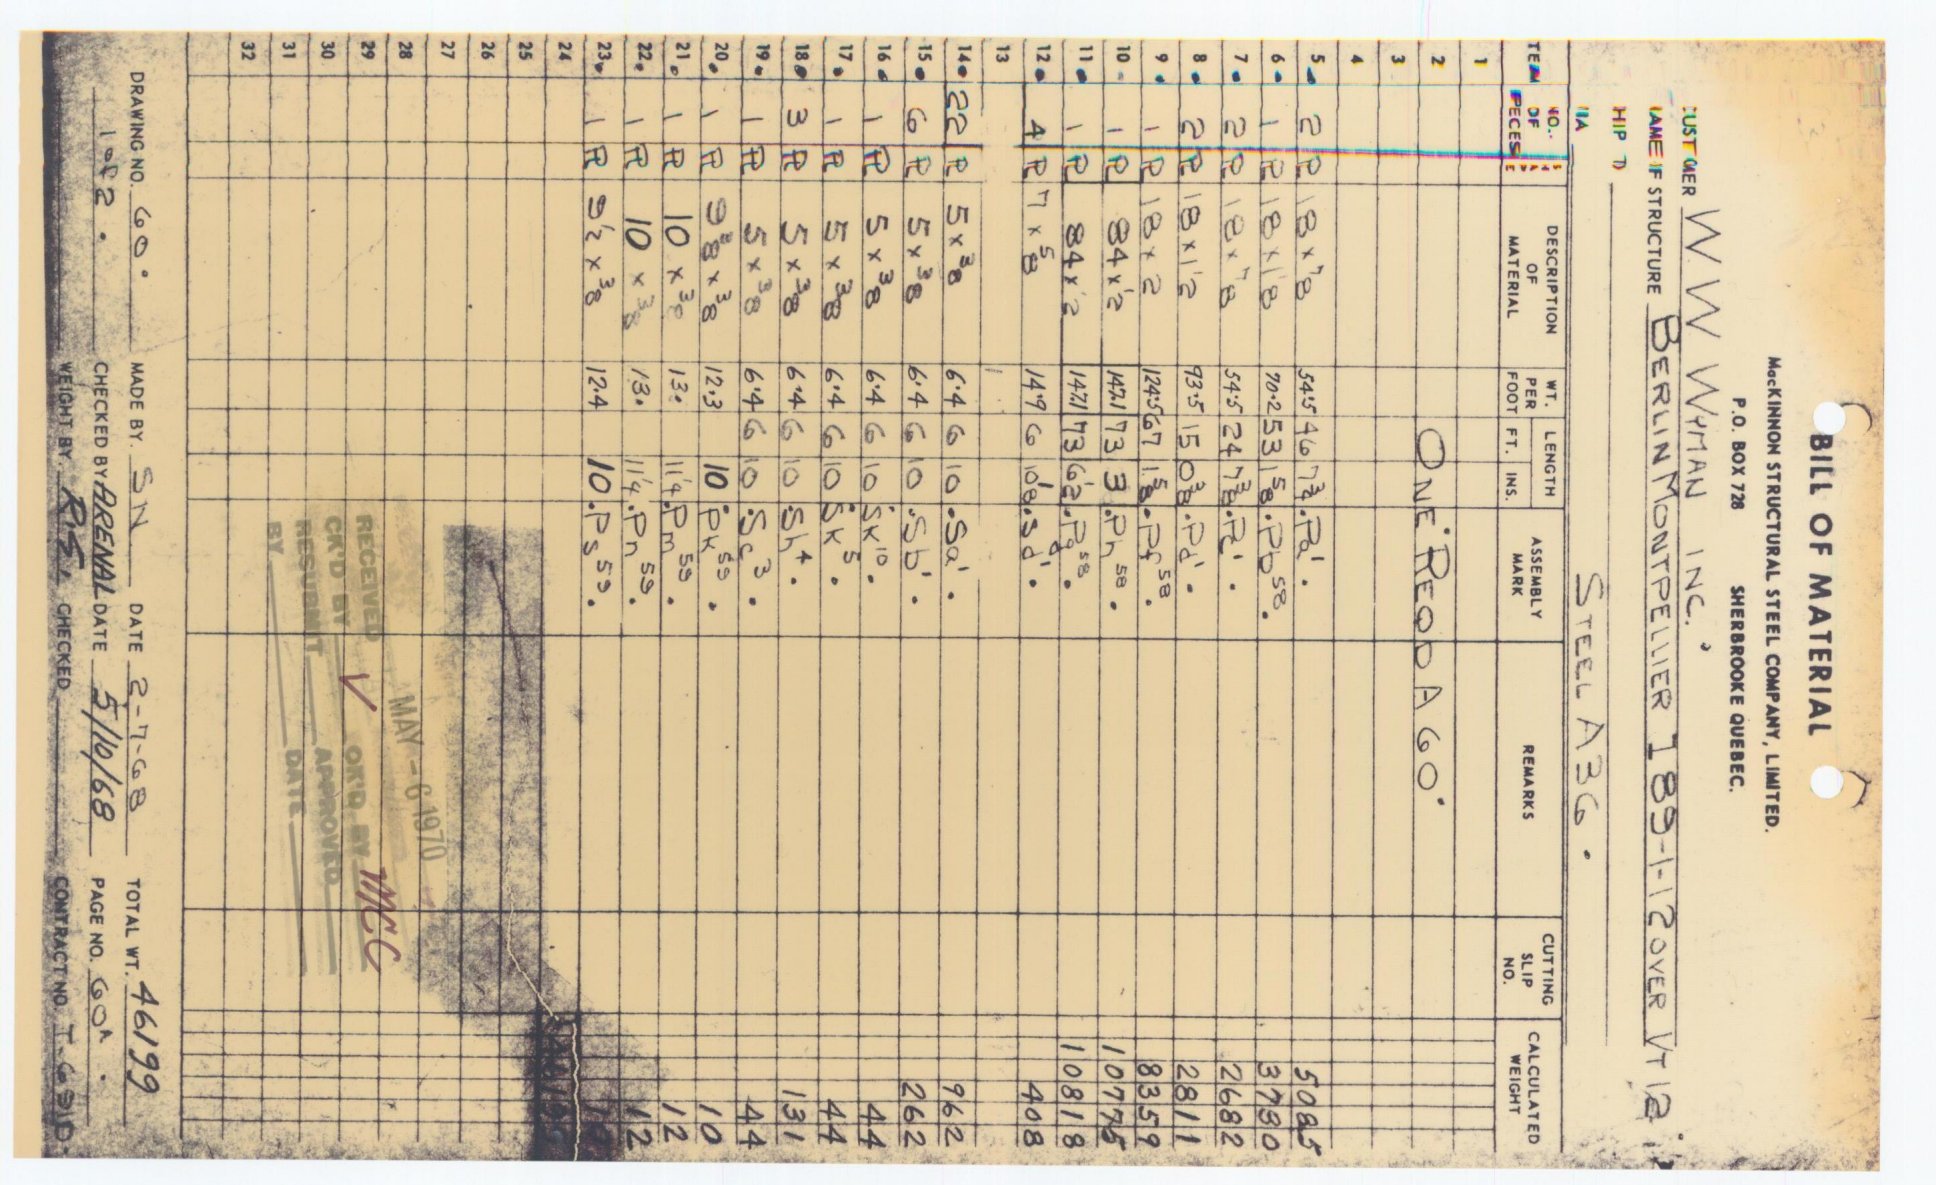 BILL OF MATERIAL
MacKINNON STRUCTURAL STEEL COMPANY, LIMITED.
P.O. BOX 728 SHERBROOKE QUEBEC.
CUSTOMER W. W. WYMAN INC.
NAME OF STRUCTURE BERLIN MONTPELLIER I 89-1-12 OVER VT 12
SHIP TO
VIA STEEL A36.
ITEM NO. OF PIECES SHAPE DESCRIPTION OF MATERIAL WT. PER FOOT LENGTH FT. INS. ASSEMBLY MARK REMARKS CUTTING SLIP NO. CALCULATED WEIGHT
1
2 ONE REQD A60.
3
4
5 2 PL 18 x 7/8 54.5 46 7 3/4 Pa' 5085
6 1 PL 18 x 1 1/8 70.2 53 1 5/8 Pb 58 3730
7 2 PL 18 x 7/8 54.5 24 7 3/8 Pc' 2682
8 2 PL 18 x 1 1/2 93.5 15 0 3/8 Pd' 2811
9 1 PL 18 x 2 124.5 67 1 5/8 Pf 58 8359
10 1 PL 84 x 1/2 147.1 73 3 Ph 58 10775
11 1 PL 84 x 1/2 147.1 73 6 1/2 Pg 58 10818
12 4 PL 7 x 5/8 14.9 6 10 1/8 Sd' 408
13
14 22 PL 5 x 3/8 6.4 6 10 Sa' 962
15 6 PL 5 x 3/8 6.4 6 10 Sb' 262
16 1 PL 5 x 3/8 6.4 6 10 Sk 10 44
17 1 PL 5 x 3/8 6.4 6 10 Sk 5 44
18 3 PL 5 x 3/8 6.4 6 10 Sh 4 131
19 1 PL 5 x 3/8 6.4 6 10 Sc 3 44
20 1 PL 9 3/8 x 3/8 12.3 10 Pk 59 10
21 1 PL 10 x 3/8 13. 11 1/4 Pm 59 12
22 1 PL 10 x 3/8 13. 11 1/4 Pn 59 12
23 1 PL 9 1/2 x 3/8 12.4 10 Ps 59 10
24
25
26
27
28
29
30
31
32
MAY - 6 1970
RECEIVED OK'D BY MCC
CK'D BY APPROVED
RESUBMIT DATE
BY
DRAWING NO. 60. MADE BY. SN DATE 2-7-68 TOTAL WT. 46199
CHECKED BY ARENAL DATE 5/10/68 PAGE NO. 60A.
WEIGHT BY. R.S. CHECKED CONTRACT NO.